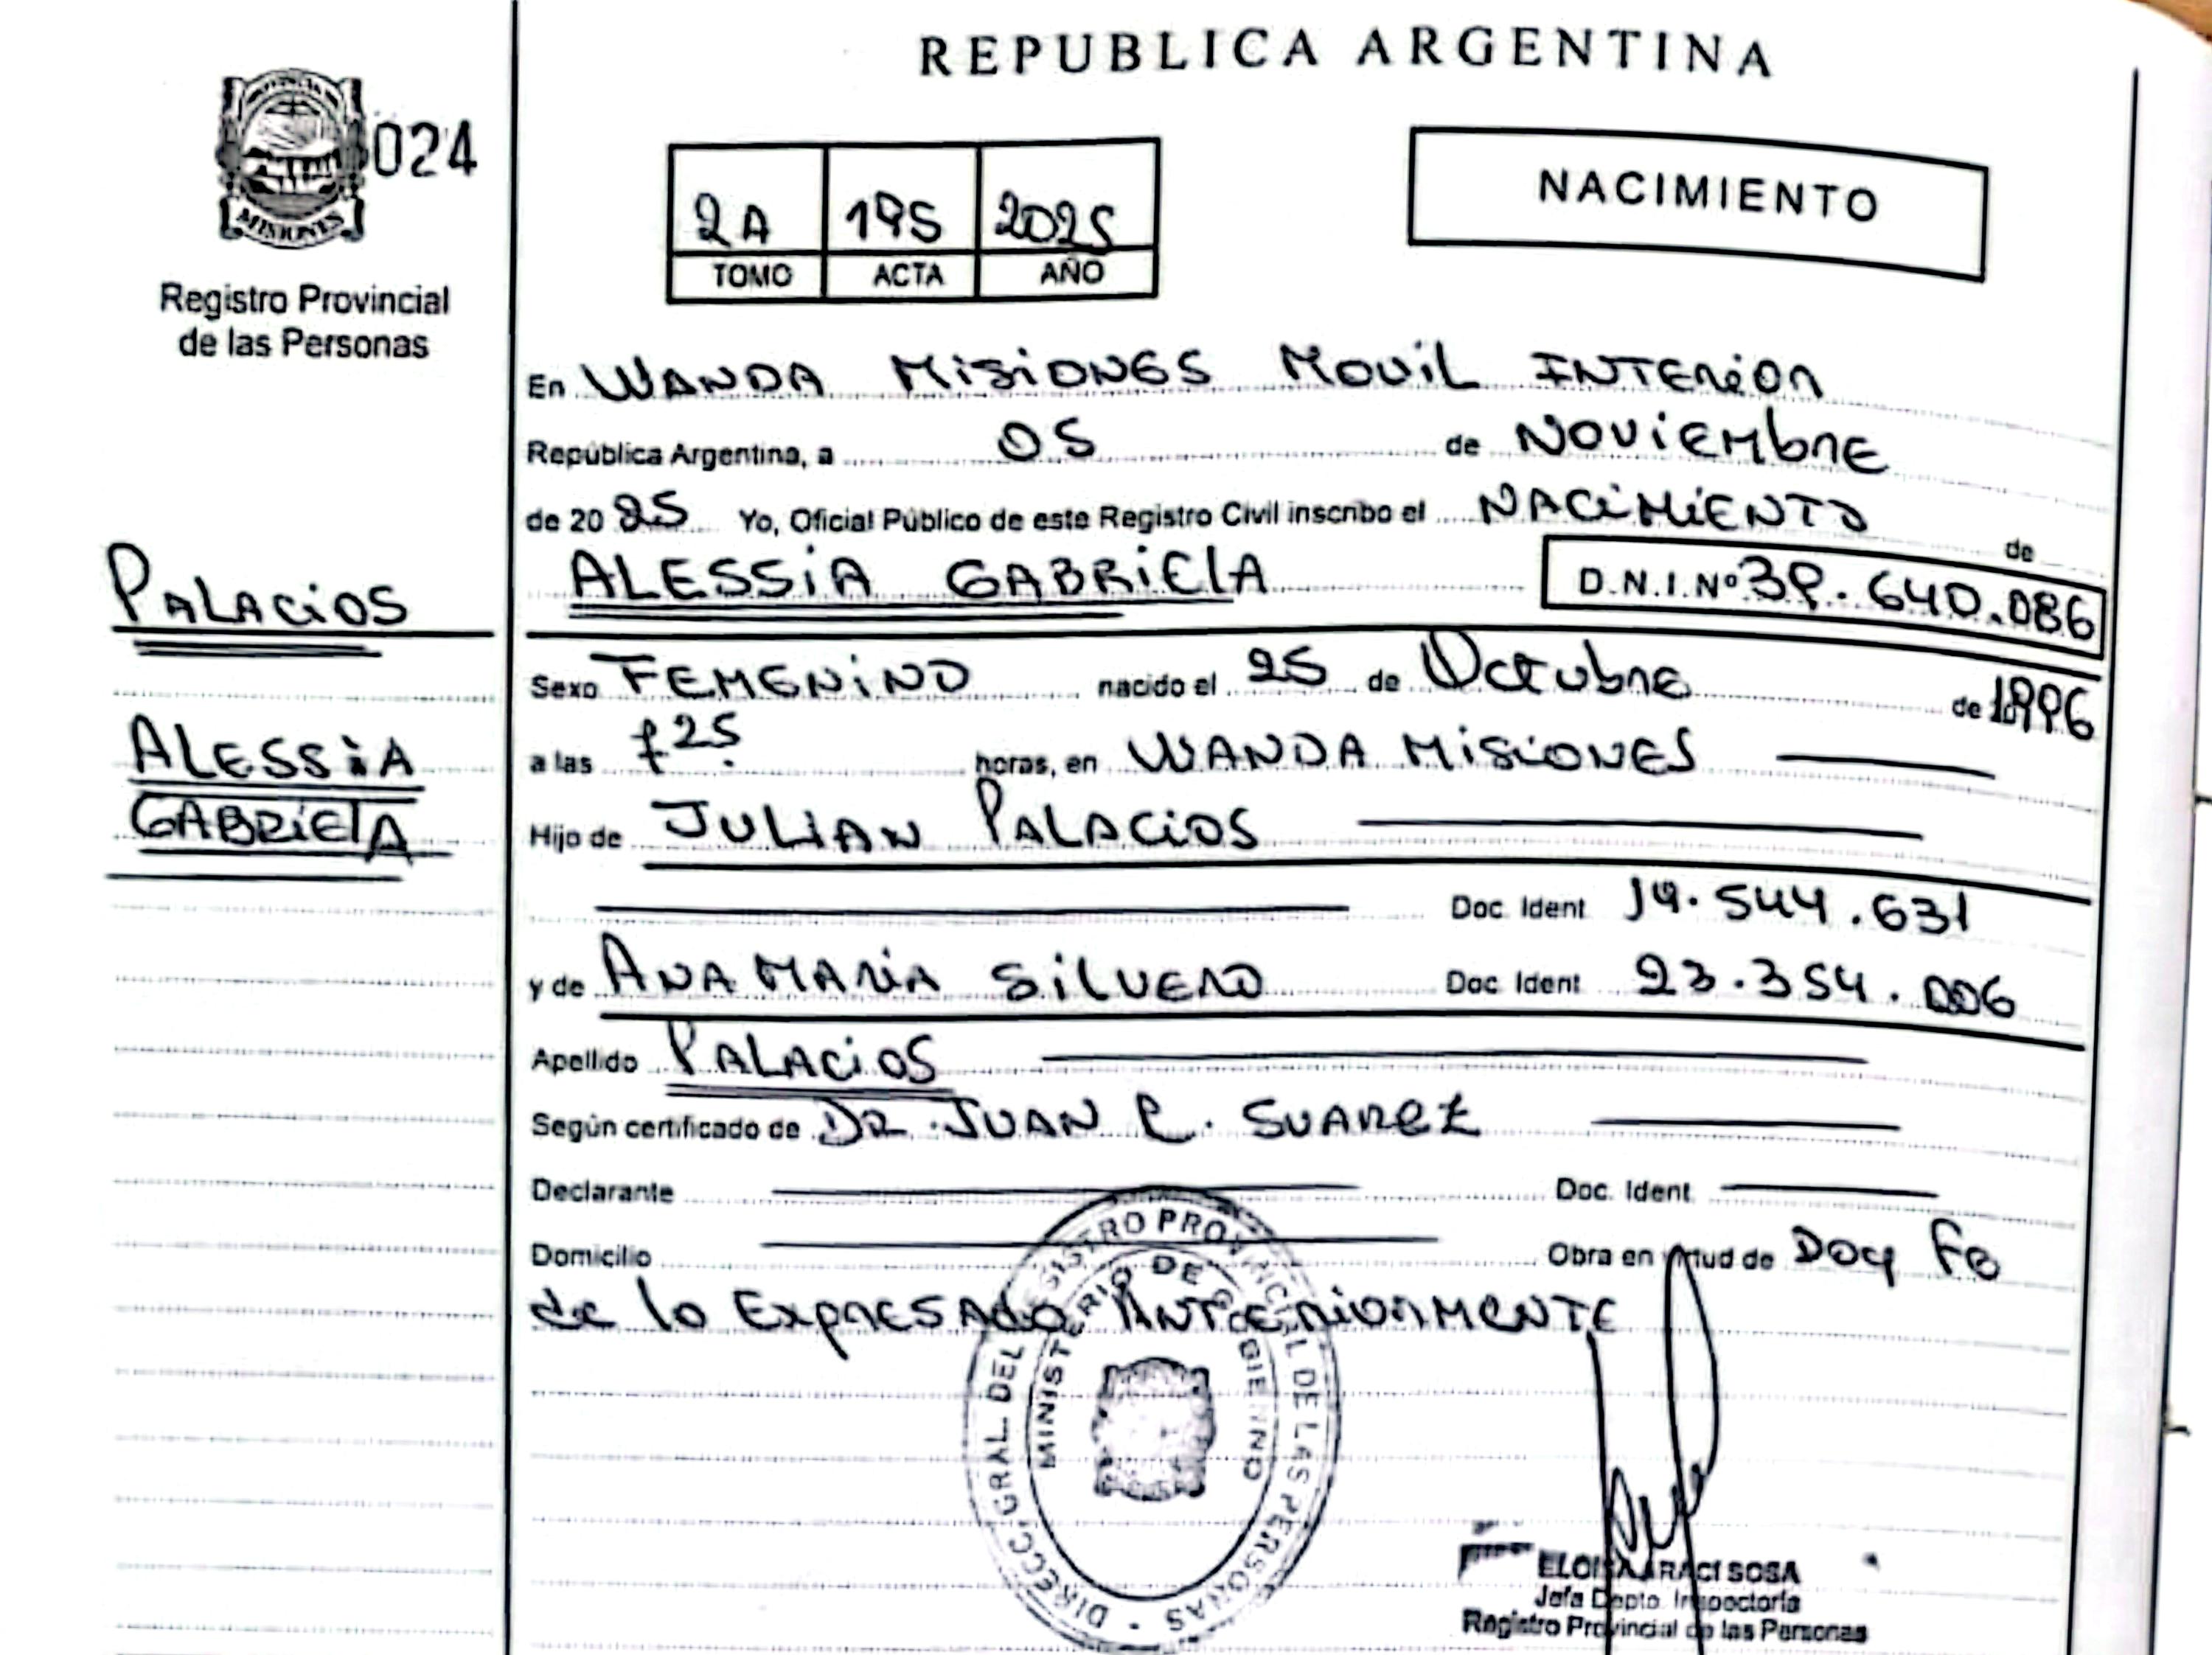 REPUBLICA ARGENTINA
MISIONES
024
Registro Provincial
de las Personas
2A 195 2025
TOMO ACTA AÑO
NACIMIENTO
En WANDA MISIONES MOVIL INTERIOR
República Argentina, a 05 de NOVIEMBRE
de 2025 Yo, Oficial Público de este Registro Civil inscribo el NACIMIENTO de
ALESSIA GABRIELA D.N.I. Nº 39.640.086
PALACIOS
Sexo FEMENINO nacido el 25 de Octubre de 1996
ALESSIA
GABRIELA
a las 7 25 horas, en WANDA MISIONES
Hijo de JULIAN PALACIOS
Doc. Ident 14.544.631
y de ANA MARIA SILVERO Doc. Ident 23.354.006
Apellido PALACIOS
Según certificado de DR. JUAN C. SUAREZ
Declarante Doc. Ident
Domicilio Obra en virtud de Doy Fe
de lo Expresado ANTERIORMENTE
DIRECC. GRAL. DEL REGISTRO PROVINCIAL DE LAS PERSONAS
MINISTERIO DE GOBIERNO
ELOISA ARACI SOSA
Jefa Depto. Inspectoría
Registro Provincial de las Personas